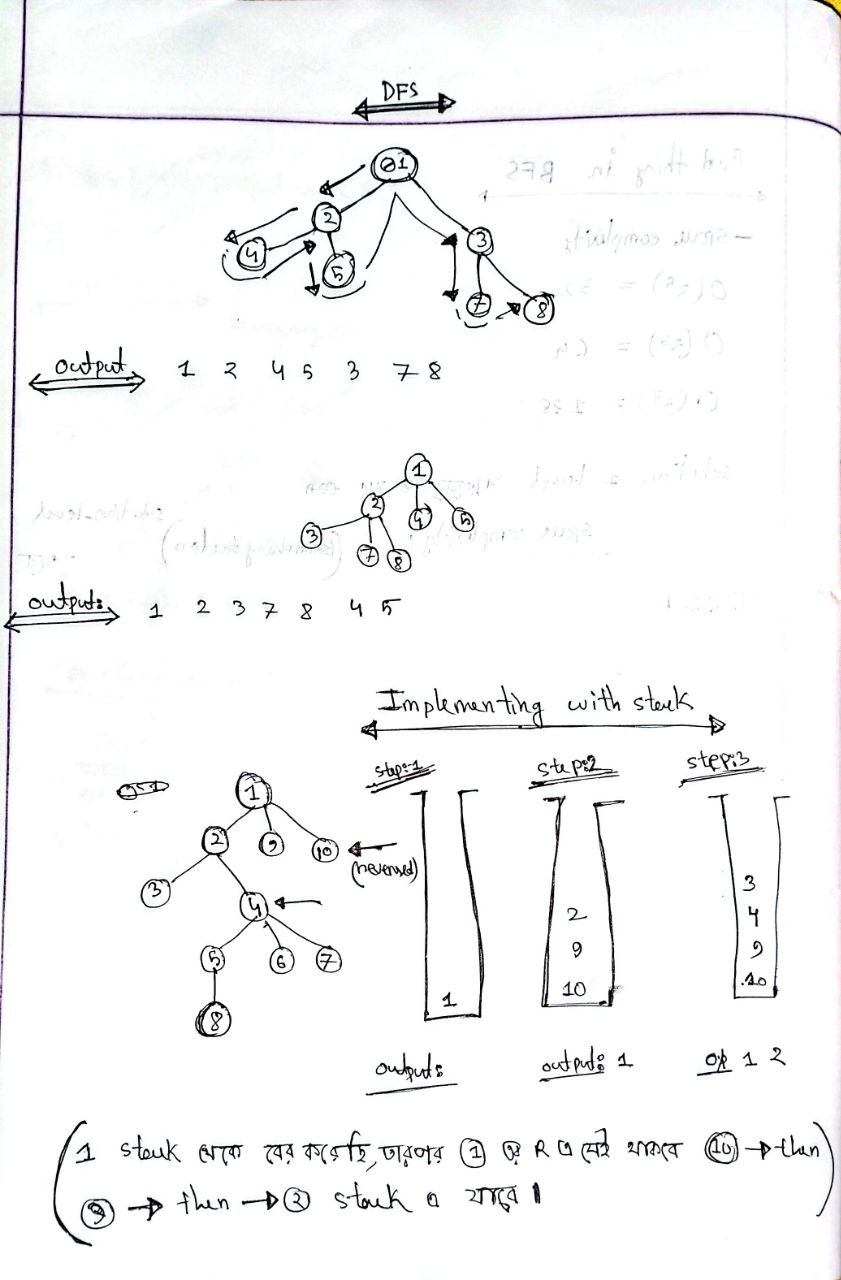 DFS
1
2
3
4
5
7
8
output 1 2 4 5 3 7 8
1
2 9 5
3
7 8
output: 1 2 3 7 8 4 5
Implementing with stack
step:1 step:2 step:3
1
2 9 10 (reversed)
3
4
5 6 7
8
1
2
9
10
3
4
9
10
output: output: 1 O/P 1 2
(1 stack থেকে বের করেছি, তারপর ① এর R এ যেই থাকবে ⑩ → then
⑨ → then → ② stack এ যাবে।)